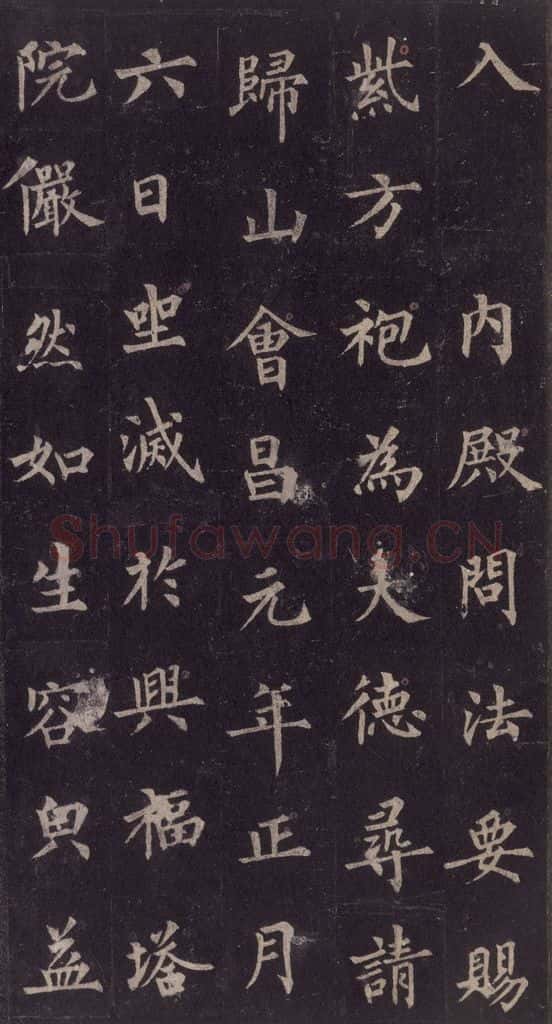 入 內殿問法要賜
紫方袍為大德尋請
歸山會昌元年正月
六日坐滅於興福塔
院儼然如生容皃益
Shufawang.CN